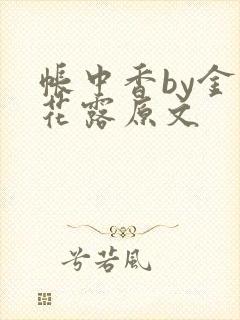 帐中香by金
花露原文
兮若风